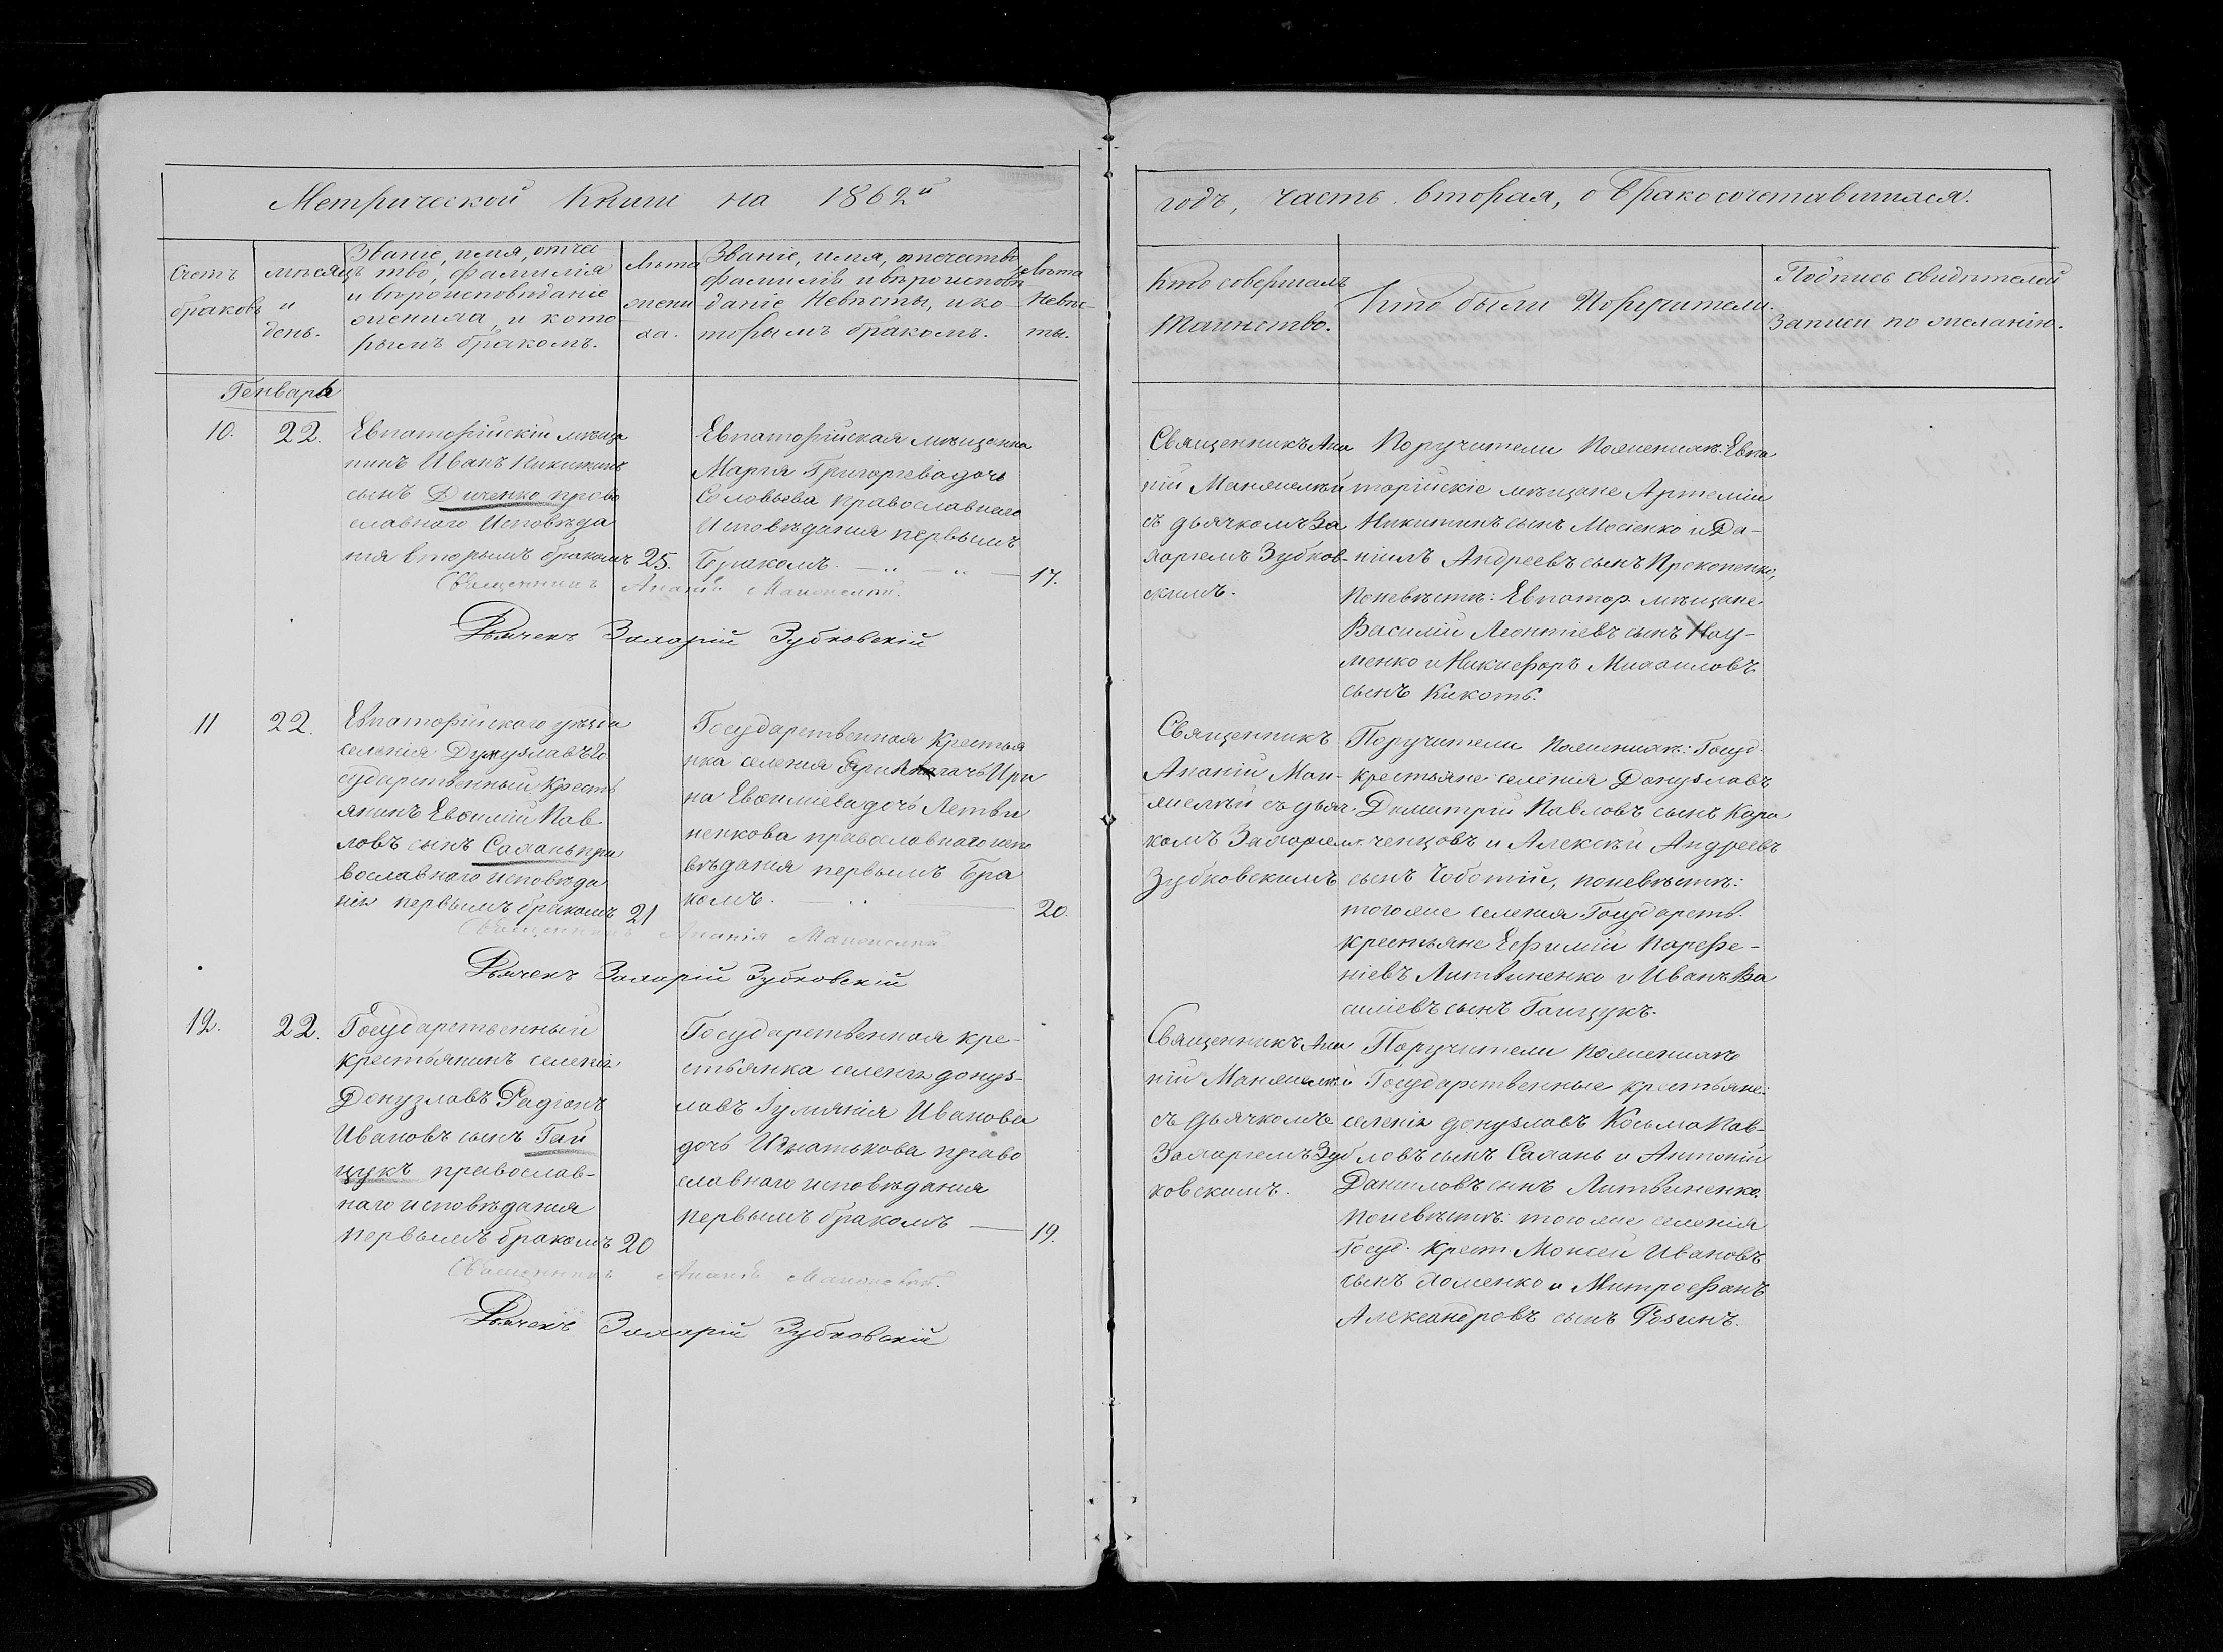 Метрической Книги на 1862й
годъ, часть вторая, о Бракосочетавшихся.
Счетъ браковъ
мѣсяцъ и день.
Званіе, имя, отче-
ство, фамилія
и вѣроисповѣданіе
жениха, и кото
рымъ бракомъ.
Лѣта
жени
ха.
Званіе, имя, отчество
фамилія и вѣроисповѣ
даніе Невѣсты, и ко
торымъ бракомъ.
Лѣта
Невѣс-
ты.
Кто совершалъ
Таинство.
Кто были Поручители.
Подпись свидѣтелей
записи по желанію.
Генварь
10.
22.
Евпаторійскій мѣща
нинъ Иванъ Никитинъ
сынъ Диченко право
славного Исповѣда
нія вторымъ бракомъ 25.
Евпаторійская мѣщанка
Марія Григоріева дочь
Соловьева православнаго
Исповѣданія первымъ
Бракомъ. 17.
Священникъ Ананій
Дьячекъ Захарій Зубковскій
Священникъ Ана
ній
съ дьячкомъ За
харіемъ Зубков-
скимъ.
Поручители Пожениха: Евпа
торійскіе мѣщане Артемій
Никитинъ сынъ Мосіенко и Да-
ніилъ Андреевъ сынъ Прокопенко,
Поневѣстѣ: Евпатор мѣщане
Василій Леонтіевъ сынъ Нау-
менко и Никифоръ Михаиловъ
сынъ Кикоть.
11
22.
Евпаторійского уѣзда
селенія Донузлавъ Го
сударственный Кресть
янинъ Евѳимій Пав
ловъ сынъ Сахань пра
вославного исповѣда
нія первымъ бракомъ 21
Государственная Крестья
нка селенія Ири
на Евѳиміева дочь Летви
ненкова православного испо
вѣданія первымъ Бра
комъ. 20.
Священникъ Ананія
Дьячекъ Захарій Зубковскій
Священникъ
Ананій
съ дьяч
комъ Захаріемъ
Зубковскимъ
Поручители Пожениха: Госуд.
крестьяне селенія Донузлавъ
Димитрій Павловъ сынъ Кара
ченцовъ и Алексѣй Андреевъ
сынъ Чоботій, поневѣстѣ:
тогоже селенія Государств.
крестьяне Ефимій Парфе-
ніевъ Литвиненко и Иванъ Ва
силіевъ сынъ Ганцукъ.
12.
22.
Государственный
крестьянинъ селенія
Донузлавъ Радіонъ
Ивановъ сынъ Ган
цукъ православ-
наго исповѣданія
первымъ бракомъ 20
Государственная кре-
стьянка селенія донуз-
лавъ Іуліянія Иванова
дочь Игнатькова право
славнаго исповѣданія
первымъ бракомъ 19.
Священникъ Ананій
Дьячекъ Захарій Зубковскій
Священникъ Ана
ній
съ дьячкомъ
Захаріемъ Зуб
ковскимъ.
Поручители пожениха
Государственные крестьяне:
селенія донузлавъ Косьма Пав-
ловъ сынъ Сахань и Антоній
Даниловъ сынъ Литвиненко.
поневѣстѣ: тогоже селенія
Госуд. Крест. Моисей Ивановъ
сынъ Хоменко и Митрофанъ
Александровъ сынъ Розинъ.